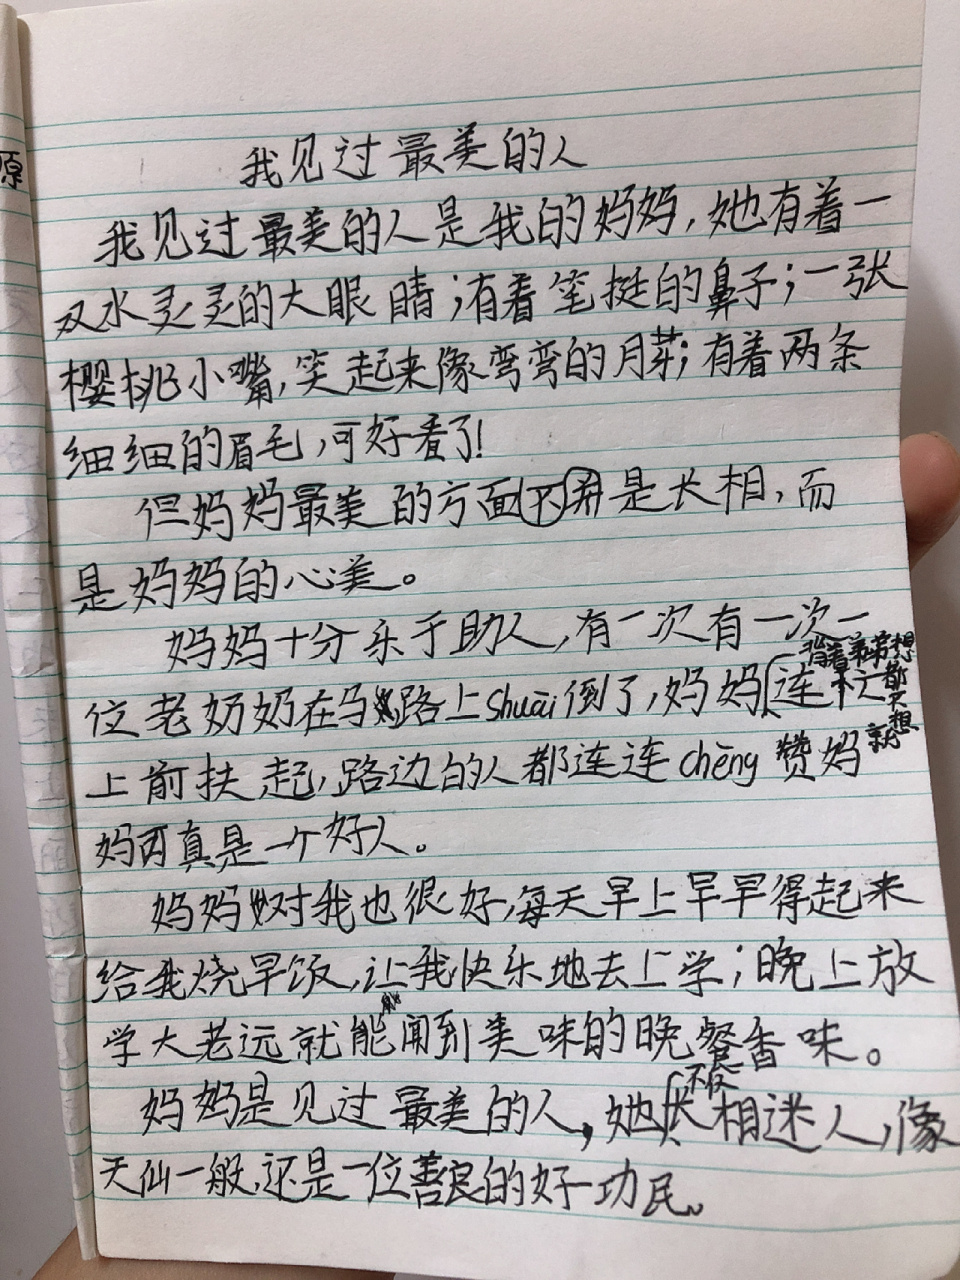 原
我见过最美的人
我见过最美的人是我的妈妈,她有着一
双水灵灵的大眼睛;有着笔挺的鼻子;一张
樱桃小嘴,笑起来像弯弯的月芽;有着两条
细细的眉毛,可好看了!
但妈妈最美的方面不并是长相,而
是妈妈的心美。
妈妈十分乐于助人,有一次有一次一
背着弟弟想都不想
位老奶奶在马路上shuāi倒了,妈妈连
上前扶起,路边的人都连连chēng赞妈
妈可真是一个好人。
妈妈对我也很好,每天早上早早得起来
给我烧早饭,让我快乐地去上学;晚上放
学大老远就能闻到美味的晚餐香味。
不仅
妈妈是见过最美的人,她长相迷人,像
天仙一般,还是一位善良的好功民。